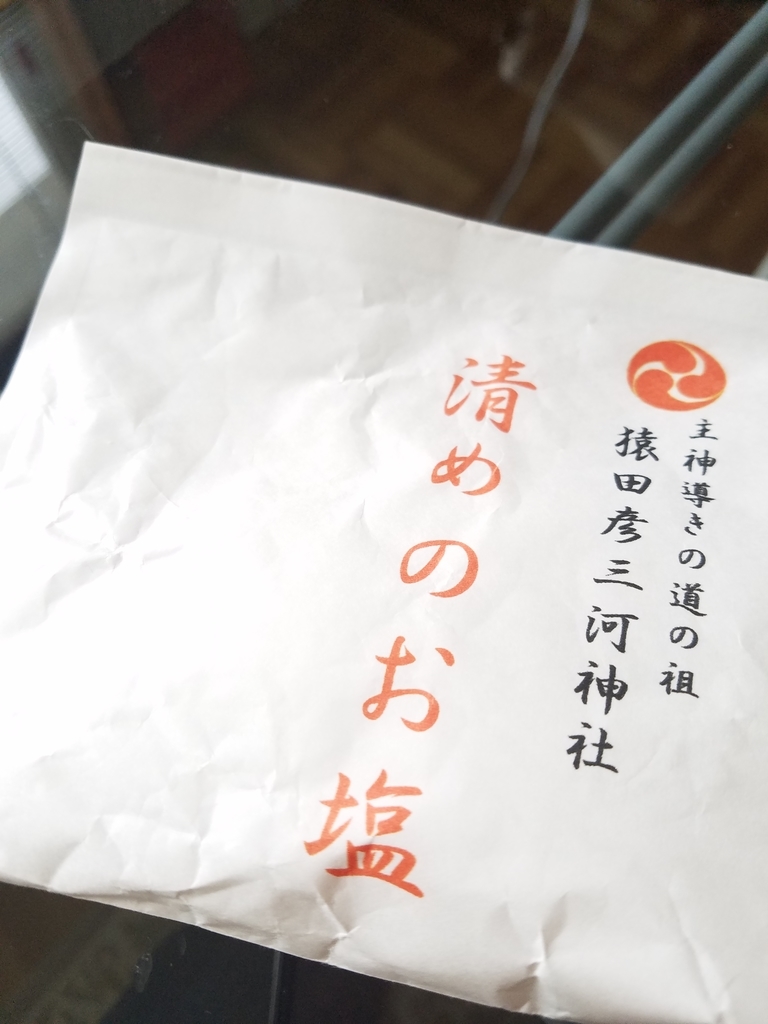 主神導きの道の祖
猿田彦三河神社
清めのお塩